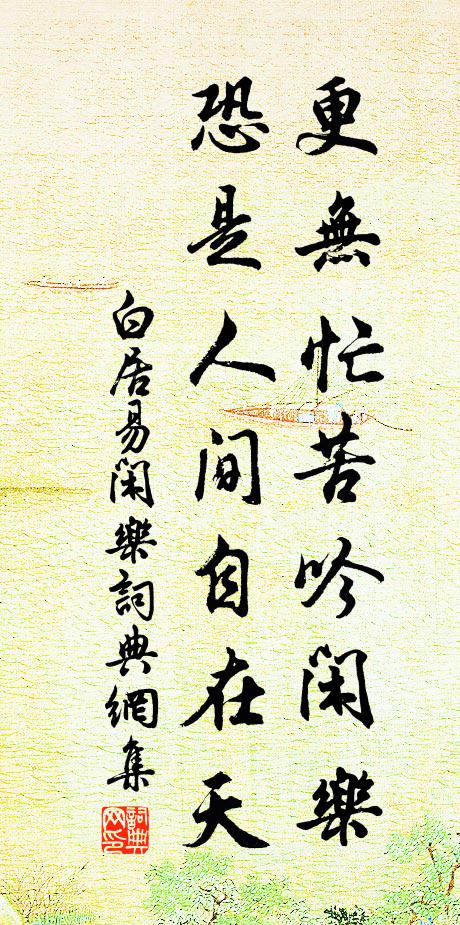 更無忙苦吟閑樂
恐是人間自在天
白居易閑樂詞典網集
詞典网印